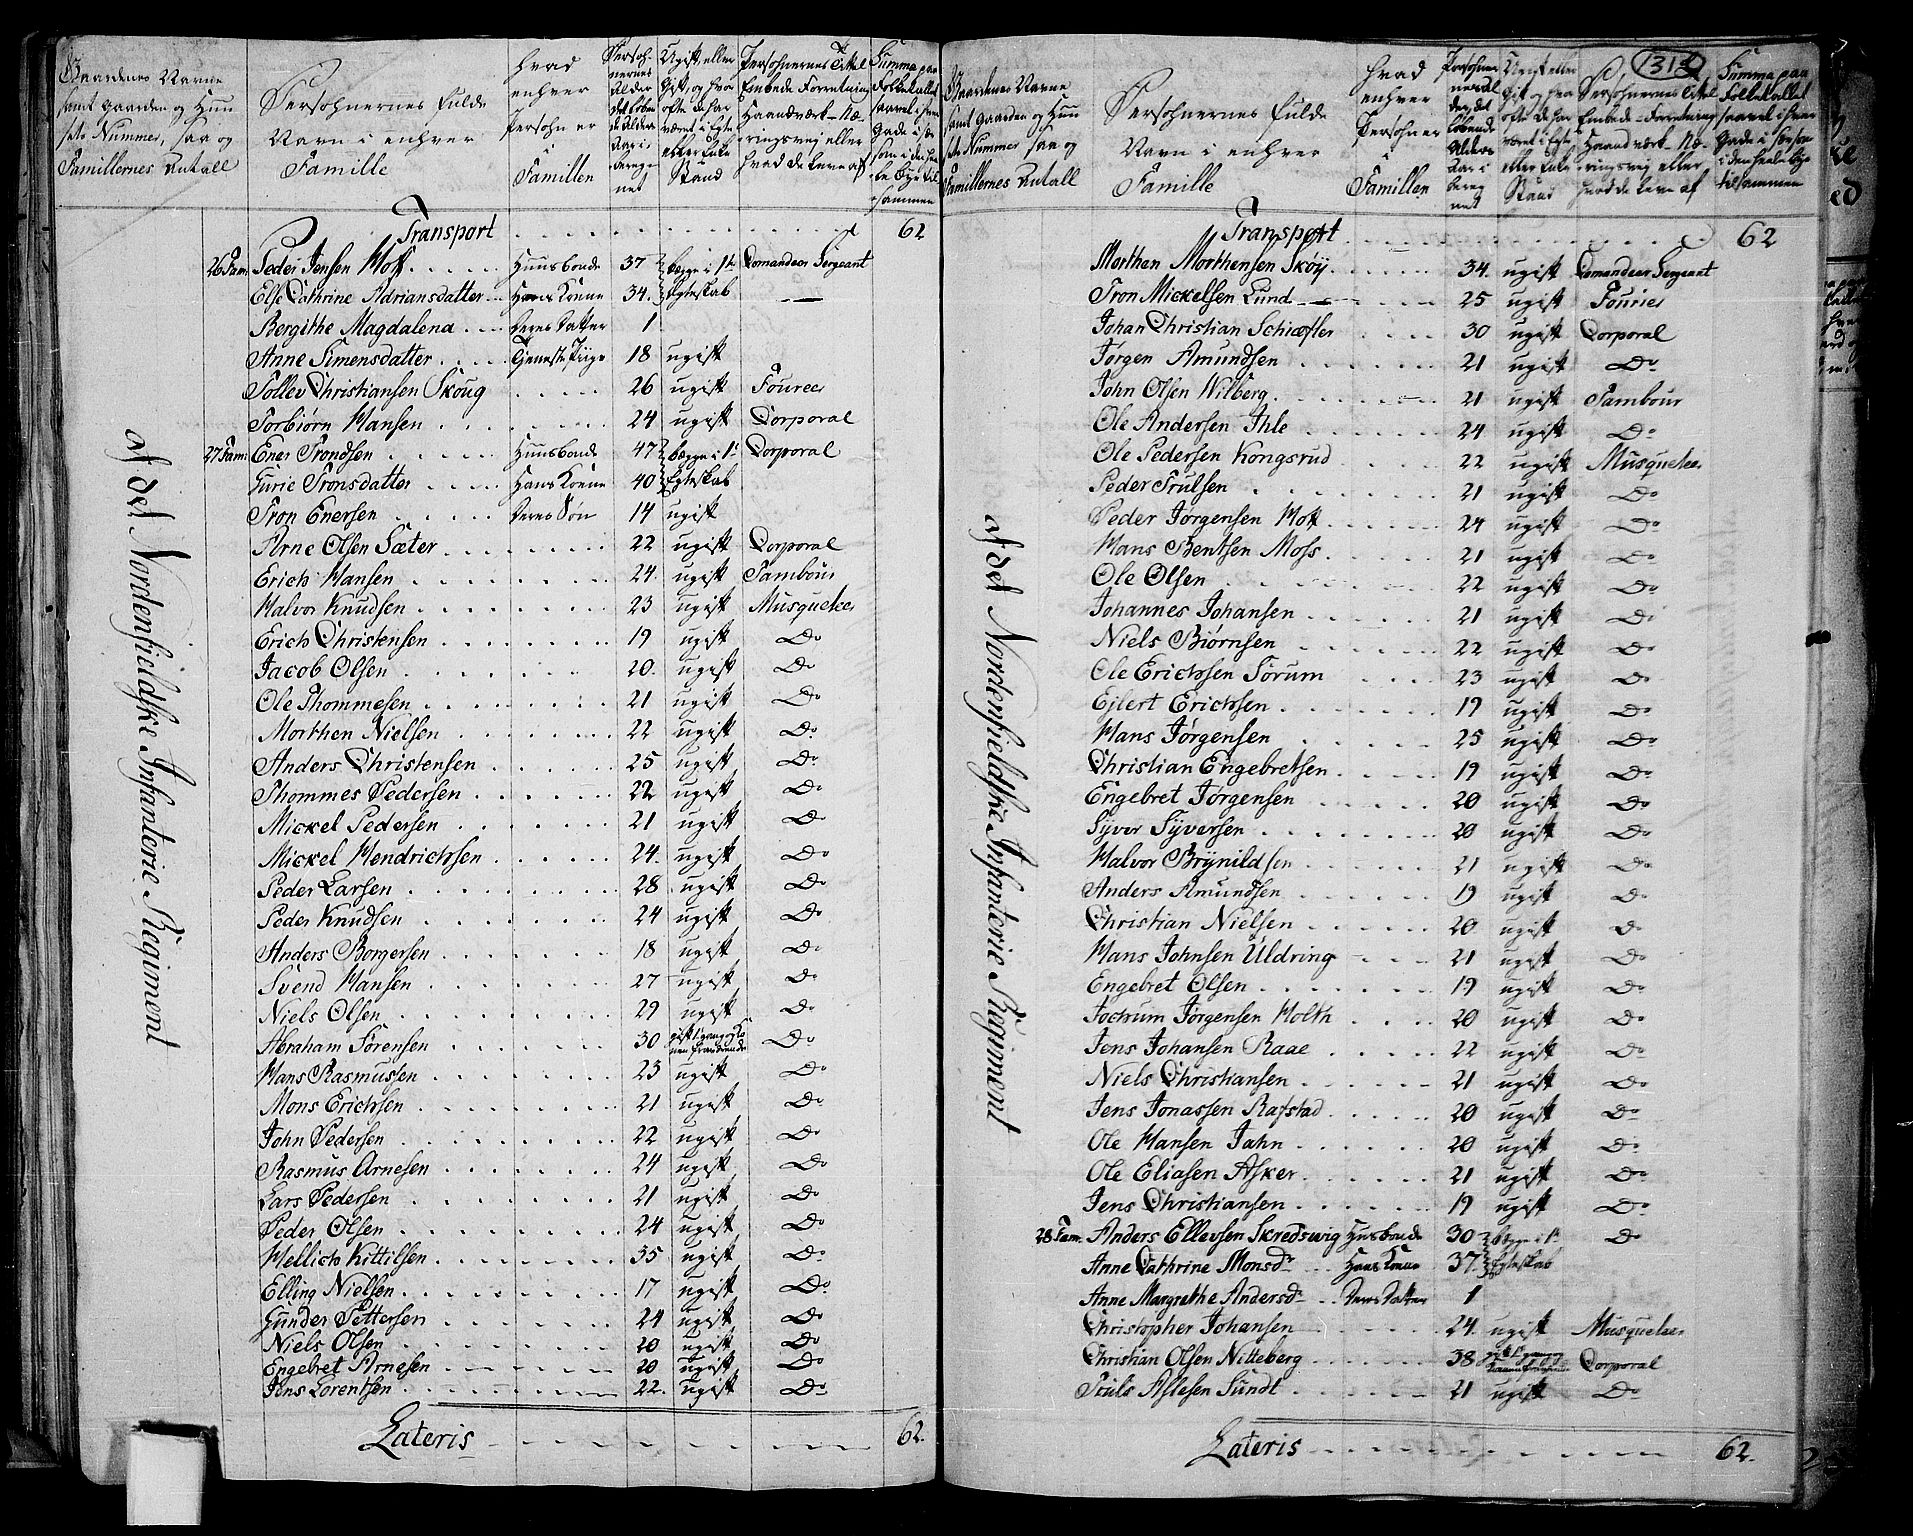 Gaardenes Navne samt Gaarden og Huusets Nummer, saa og Famillernes Antall
Persohnernes fulde Navn i enhver Famille
hvad enhver Persohn er i Famillen
Persohnernes Alder det løbende Alders Aar i beregnet
Ugift eller Gift, og hvor ofte de har været i Egte eller Enke Stand
Persohnernes Titel Embede Forretning Haandværk Næringsvej eller hvad de leve af
Summa paa Folketallet saavel i hver Gade i særsom i den heele Bye tilsammen
Transport 62
26 Fam: Peder Jensen Moss Huusbonde 37 begge i 1te Comandeer Sergeant
Else Cathrine Adriansdatter Hans Kone 34. Egteskab
Bergithe Magdalena Deres Datter 1
Anne Simensdatter Tjeneste Piige 18 ugift
Tollev Christiansen Skoug 26 ugift Fourer
Torbiørn Hansen 24 ugift Corporal
27 Fam: Ener Trondsen Huusbonde 47 begge i 1te Corporal
Gurie Tronsdatter Hans Konne 40 Egteskab
Tron Enersen Deres Søn 14 ugift
Arne Olsen Sæter 22 ugift Corporal
Erich Hansen 24. ugift Tambour
Halvor Knudsen 23 ugift Musqueteer
Erich Christensen 19 ugift Do
Jacob Olsen 20. ugift Do
Ole Thommesen 21 ugift Do
Morthen Nielsen 22 ugift Do
Anders Christensen 25 ugift Do
Thommes Pedersen 22 ugift Do
Mickel Pedersen 21 ugift Do
Mickel Hendrichsen 24. ugift Do
Peder Larsen 28 ugift Do
Peder Knudsen 24 ugift Do
Anders Borgersen 18 ugift Do
Svend Hansen 27 ugift Do
Niels Olsen 29 ugift Do
Abraham Sørensen 30 gift 1 gang og Konen fraværende Do
Hans Rasmussen 23 ugift Do
Mons Erichsen 21 ugift Do
John Pedersen 22 ugift Do
Rasmus Arnesen 24 ugift Do
Lars Pedersen 21 ugift Do
Peder Olsen 24 ugift Do
Mellich Kittilsen 35 ugift Do
Elling Nielsen 17 ugift Do
Gunder Pettersen 24 ugift Do
Niels Olsen 20 ugift Do
Engebret Arnesen 20 ugift Do
Jens Lorentsen 22. ugift Do
Lateris 62.
af det Nordenfieldske Infanterie Regiment
1313
Gaardenes Navne samt Gaarden og Huusets Nummer saa og Famillernes Antall
Persohnernes fulde Navn i enhver Famille
hvad enhver Persohn er i Famillen
Persohnernes Alder det løbende Alders Aar i beregnet
Ugift eller Gift og hvor ofte de har været i Egte eller Enke Stand
Persohnernes Titel Embede Forretning Haandværk Næringsvej eller hvad de leve af
Summa paa Folketallet saavel i hver Gade i særsom i den heele bye tilsammen
Transport 62
Morthen Morthensen Skøy 34. ugift Comandeer Sergeant
Tron Mickelsen Lund 25 ugift Fourier
Johan Christian Schiøtler 30 ugift Corporal
Jørgen Amundsen 21 ugift Do
John Olsen Wilberg 21 ugift Tambour
Ole Andersen Ihle 24 ugift Do
Ole Pedersen Kongsrud 22 ugift Musqueteer
Peder Trulsen 21 ugift Do
Peder Jørgensen Moss 24 ugift Do
Hans Bentsen Moss 21 ugift Do
Ole Olsen 22 ugift Do
Johannes Johansen 21 ugift Do
Niels Biørnsen 22 ugift Do
Ole Erichsen Sørum 23 ugift Do
Ejlert Erichsen 19 ugift Do
Hans Jørgensen 25 ugift Do
Christian Engebretsen 19 ugift Do
Engebret Jørgensen 20 ugift Do
Syver Syversen 20 ugift Do
Halvor Brynildsen 21 ugift Do
Anders Amundsen 19 ugift Do
Christian Nielsen 20 ugift Do
Hans Johnsen Uldring 21 ugift Do
Engebret Olsen 19 ugift Do
Jochum Jørgensen Molth 20 ugift Do
Jens Johansen Raae 22 ugift Do
Niels Christiansen 21 ugift Do
Jens Jonassen Rafstad 20 ugift Do
Ole Hansen Jahn 20 ugift Do
Ole Eliasen Asker 21 ugift Do
Jens Christiansen 19 ugift Do
28 Fam. Anders Ellevsen Skredswig Husbonde 30 begge i 1te Do
Anne Cathrine Monsdr Hans Konne 37. Egteskab
Anne Margrethe Andersdr Deres Datter 1
Christopher Johansen 24. ugift Musqueteer
Christian Olsen Nitteberg 38 gift 1 gang og Konen fraværende Corporal
Truls Aslesen Sundt 21 ugift Do
Lateris 62.
af det Nordenfieldske Infanterie Regiment